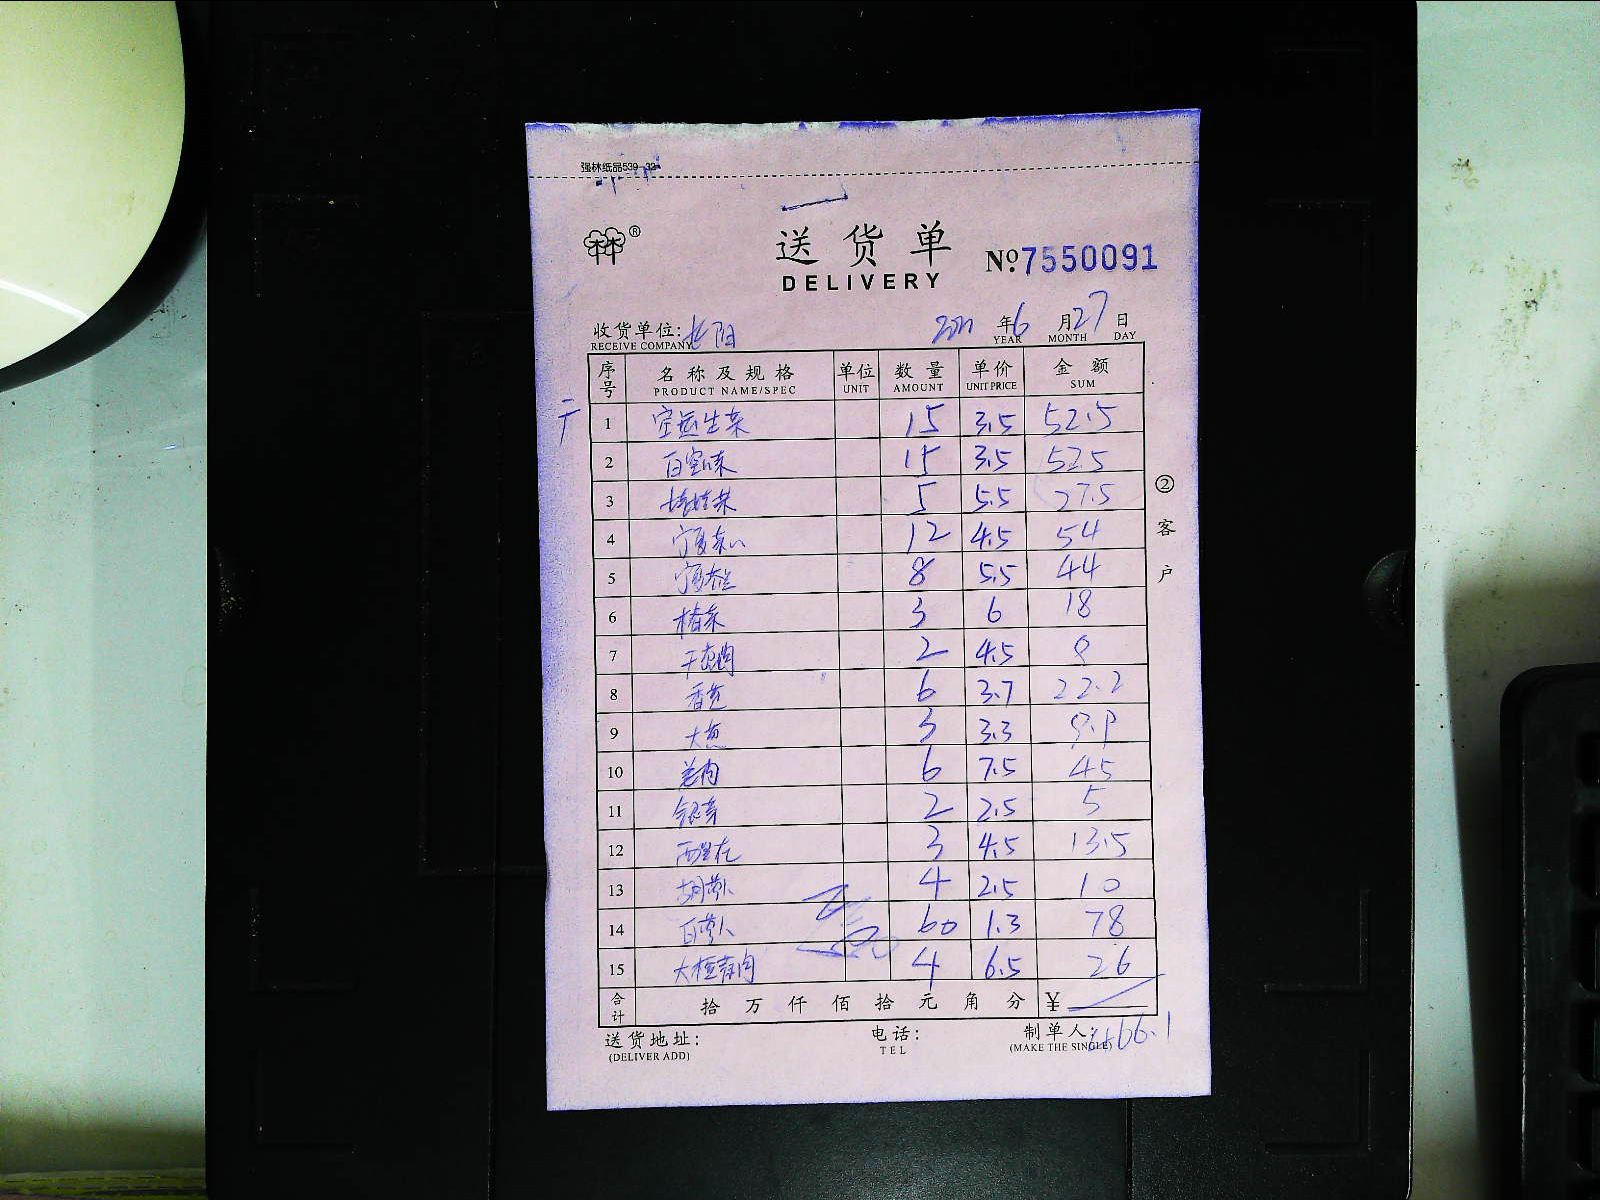 强林纸品539-32
林林®
送货单
DELIVERY
Nº.7550091
收货单位:
RECEIVE COMPANY
2021年6月27日
YEAR MONTH DAY
序号 名称及规格 单位 数量 单价 金额
PRODUCT NAME/SPEC UNIT AMOUNT UNIT PRICE SUM
1 空运生菜 15 3.5 52.5
2 15 3.5 52.5
3 娃娃菜 5 5.5 27.5
4 宁夏菜心 12 4.5 54
5 8 5.5 44
6 3 6 18
7 2 4.5 9
8 香芫 6 3.7 22.2
9 大葱 3 3.3 9.9
10 姜肉 6 7.5 45
11 银芽 2 2.5 5
12 3 4.5 13.5
13 胡萝卜 4 2.5 10
14 白萝卜 60 1.3 78
15 4 6.5 26
②客户
合计 拾 万 仟 佰 拾 元 角 分 ¥
466.1
送货地址: 电话: 制单人:
(DELIVER ADD) TEL (MAKE THE SINGLE)